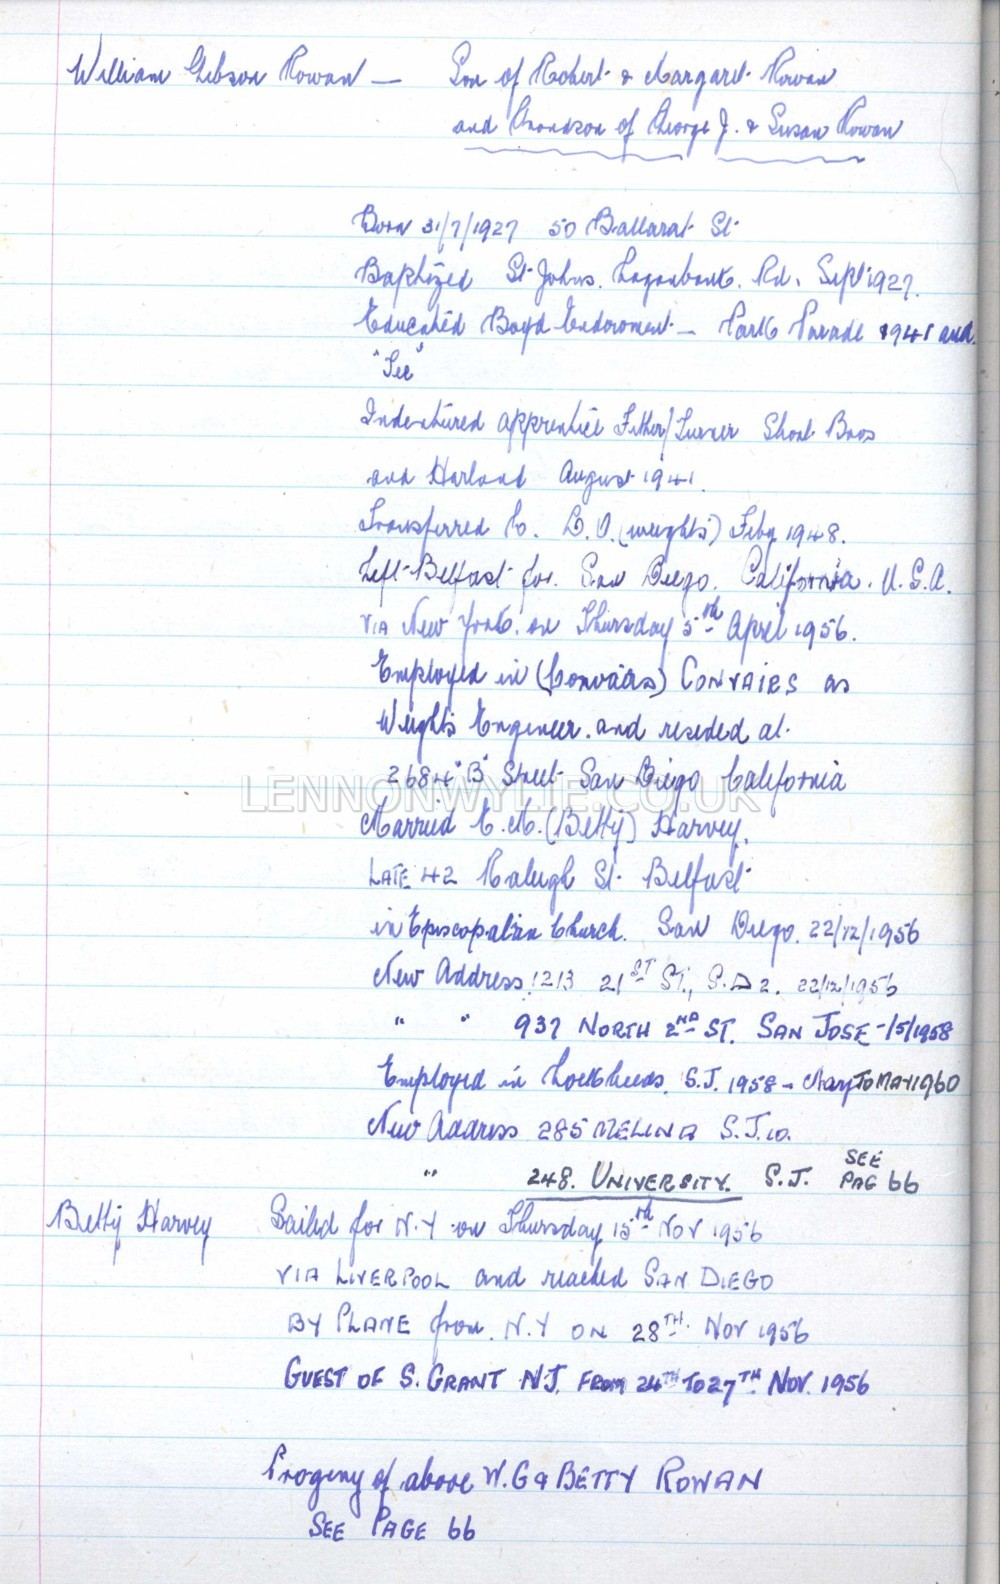 William Gibson Rowan — Son of Robert & Margaret Rowan
and Grandson of George J. & Susan Rowan
Born 31/7/1927 50 Ballarat St.
Baptized St Johns. Laganbank. Rd. Sept 1927.
Educated Boyd Endowment — Park Parade 1941 and
"Tec"
Indentured apprentice Fitter/Turner Short Bros
and Harland August 1941.
Transferred to. D.O. (weights) Feby 1948.
Left Belfast for. San Diego. California. U.S.A.
VIA New York. on Thursday 5th April 1956.
Employed in (Convairs) CONVAIRS as
Weights Engineer. and resided at.
2684 "B" Street San Diego California
LENNONWYLIE.CO.UK
Married E. M. (Betty) Harvey.
LATE 42 Raleigh St. Belfast
in Episcopalian Church. San Diego. 22/12/1956
New Address. 1213 21ST ST., S.D 2. 22/12/1956
" " 937 NORTH 2ND ST. SAN JOSE -/5/1958
Employed in Lockheeds. S.J. 1958 - May TO MAY 1960
New Address 285 MELINDA S.J. 10.
" 248. UNIVERSITY. S.J. SEE PAG 66
Betty Harvey Sailed for N.Y on Thursday 15th NOV 1956
VIA LIVERPOOL and reached SAN DIEGO
BY PLANE from. N.Y ON 28TH. NOV 1956
GUEST OF S. GRANT N.J. FROM 24TH TO 27TH NOV. 1956
Progeny of above W.G & BETTY ROWAN
SEE PAGE 66